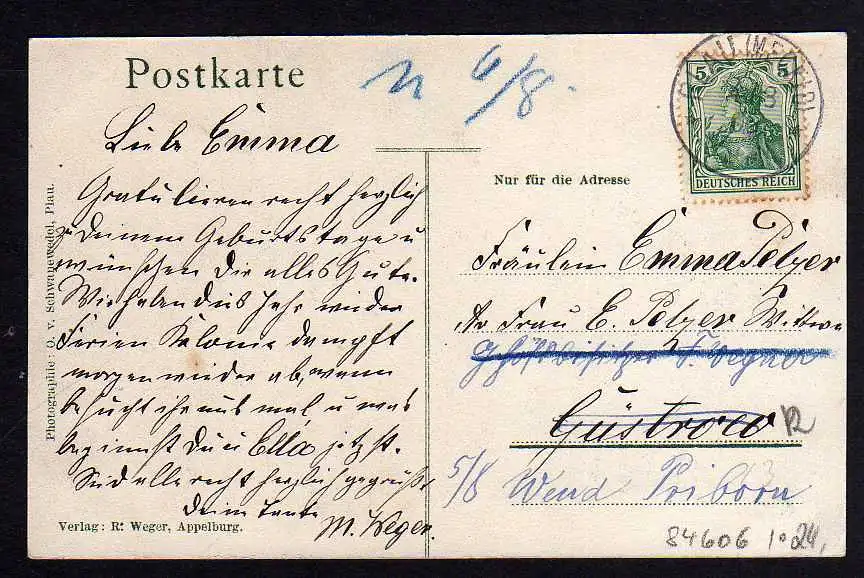 Postkarte
n 6/8.
5 5
DEUTSCHES REICH
Nur für die Adresse
Liebe Emma
Gratulieren recht herzlich
zu Deinem Geburtstage u
wünschen Dir alles Gute.
Wir haben dies Jahr wieder
Ferien Kolonie dampft
morgen wieder ab, wann
besucht ihr uns mal u was
beginnst Du u Ella jetzt.
Seid alle recht herzlich gegrüßt
Deine Tante
M. Weger.
Fräulein Emma Pelzer
Frau E. Pelzer Wittwe
Güstrow
5/8 Wend Priborn
84606 10 24,
Photographie: O. v. Schwanewedel, Plau.
Verlag: R. Weger, Appelburg.